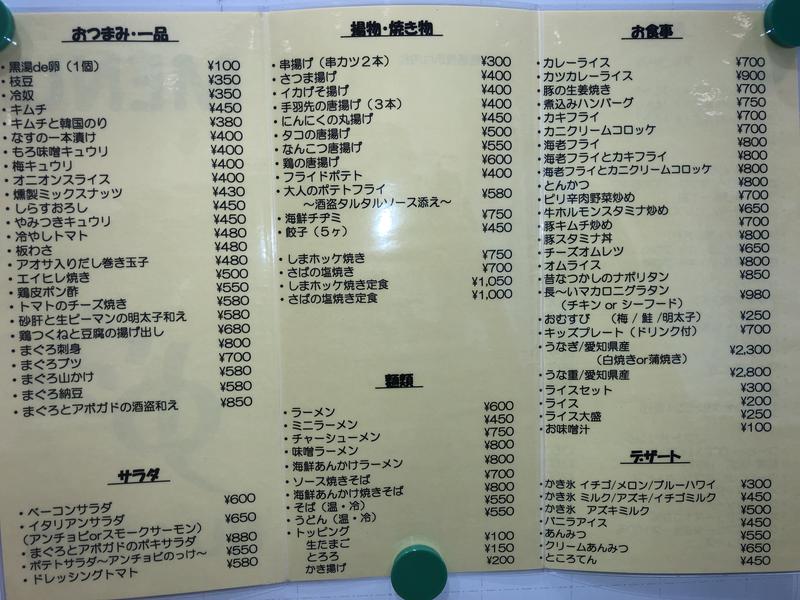 おつまみ・一品
・黒湯de卵（1個） ¥100
・枝豆 ¥350
・冷奴 ¥350
・キムチ ¥450
・キムチと韓国のり ¥380
・なすの一本漬け ¥400
・もろ味噌キュウリ ¥400
・梅キュウリ ¥400
・オニオンスライス ¥400
・燻製ミックスナッツ ¥430
・しらすおろし ¥450
・やみつきキュウリ ¥450
・冷やしトマト ¥480
・板わさ ¥480
・アオサ入りだし巻き玉子 ¥480
・エイヒレ焼き ¥500
・鶏皮ポン酢 ¥550
・トマトのチーズ焼き ¥580
・砂肝と生ピーマンの明太子和え ¥580
・鶏つくねと豆腐の揚げ出し ¥680
・まぐろ刺身 ¥800
・まぐろブツ ¥700
・まぐろ山かけ ¥580
・まぐろ納豆 ¥580
・まぐろとアボガドの酒盗和え ¥850
サラダ
・ベーコンサラダ ¥600
・イタリアンサラダ ¥650
（アンチョビorスモークサーモン）
・まぐろとアボガドのポキサラダ ¥880
・ポテトサラダ～アンチョビのっけ～ ¥550
・ドレッシングトマト ¥580
揚物・焼き物
・串揚げ（串カツ２本） ¥300
・さつま揚げ ¥400
・イカげそ揚げ ¥400
・手羽先の唐揚げ（３本） ¥400
・にんにくの丸揚げ ¥450
・タコの唐揚げ ¥500
・なんこつ唐揚げ ¥550
・鶏の唐揚げ ¥600
・フライドポテト ¥400
・大人のポテトフライ ¥580
～酒盗タルタルソース添え～
・海鮮チヂミ ¥750
・餃子（５ヶ） ¥450
・しまホッケ焼き ¥750
・さばの塩焼き ¥700
・しまホッケ焼き定食 ¥1,050
・さばの塩焼き定食 ¥1,000
麺類
・ラーメン ¥600
・ミニラーメン ¥450
・チャーシューメン ¥750
・味噌ラーメン ¥800
・海鮮あんかけラーメン ¥800
・ソース焼きそば ¥700
・海鮮あんかけ焼きそば ¥800
・そば（温・冷） ¥550
・うどん（温・冷） ¥550
・トッピング
生たまご ¥100
とろろ ¥150
かき揚げ ¥200
お食事
・カレーライス ¥700
・カツカレーライス ¥900
・豚の生姜焼き ¥700
・煮込みハンバーグ ¥750
・カキフライ ¥700
・カニクリームコロッケ ¥700
・海老フライ ¥800
・海老フライとカキフライ ¥800
・海老フライとカニクリームコロッケ ¥800
・とんかつ ¥800
・ピリ辛肉野菜炒め ¥700
・牛ホルモンスタミナ炒め ¥650
・豚キムチ炒め ¥700
・豚スタミナ丼 ¥800
・チーズオムレツ ¥650
・オムライス ¥800
・昔なつかしのナポリタン ¥850
・長～いマカロニグラタン ¥980
（チキン or シーフード）
・おむすび （梅 / 鮭 /明太子） ¥250
・キッズプレート（ドリンク付） ¥700
・うなぎ/愛知県産 ¥2,300
（白焼きor蒲焼き）
・うな重/愛知県産 ¥2,800
・ライスセット ¥300
・ライス ¥200
・ライス大盛 ¥250
・お味噌汁 ¥100
デザート
・かき氷 イチゴ/メロン/ブルーハワイ ¥300
・かき氷 ミルク/アズキ/イチゴミルク ¥450
・かき氷 アズキミルク ¥500
・バニラアイス ¥450
・あんみつ ¥550
・クリームあんみつ ¥650
・ところてん ¥450